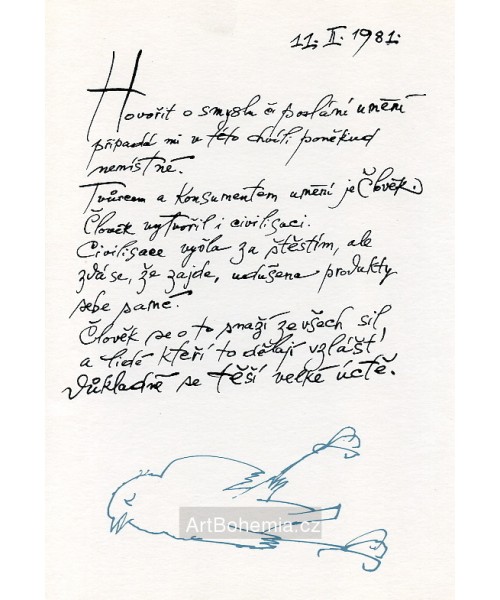 11. II. 1981.
Hovořit o smyslu či poslání umění
připadá mi v této chvíli poněkud
nemístné.
Tvůrcem a konsumentem umění je Člověk.
Člověk vytvořil i civilisaci.
Civilisace vyšla za štěstím, ale
zdá se, že zajde, udušena produkty
sebe samé.
Člověk se o to snaží ze všech sil,
a lidé kteří to dělají vzlášť
důkladně se těší velké úctě.
ArtBohemia.cz